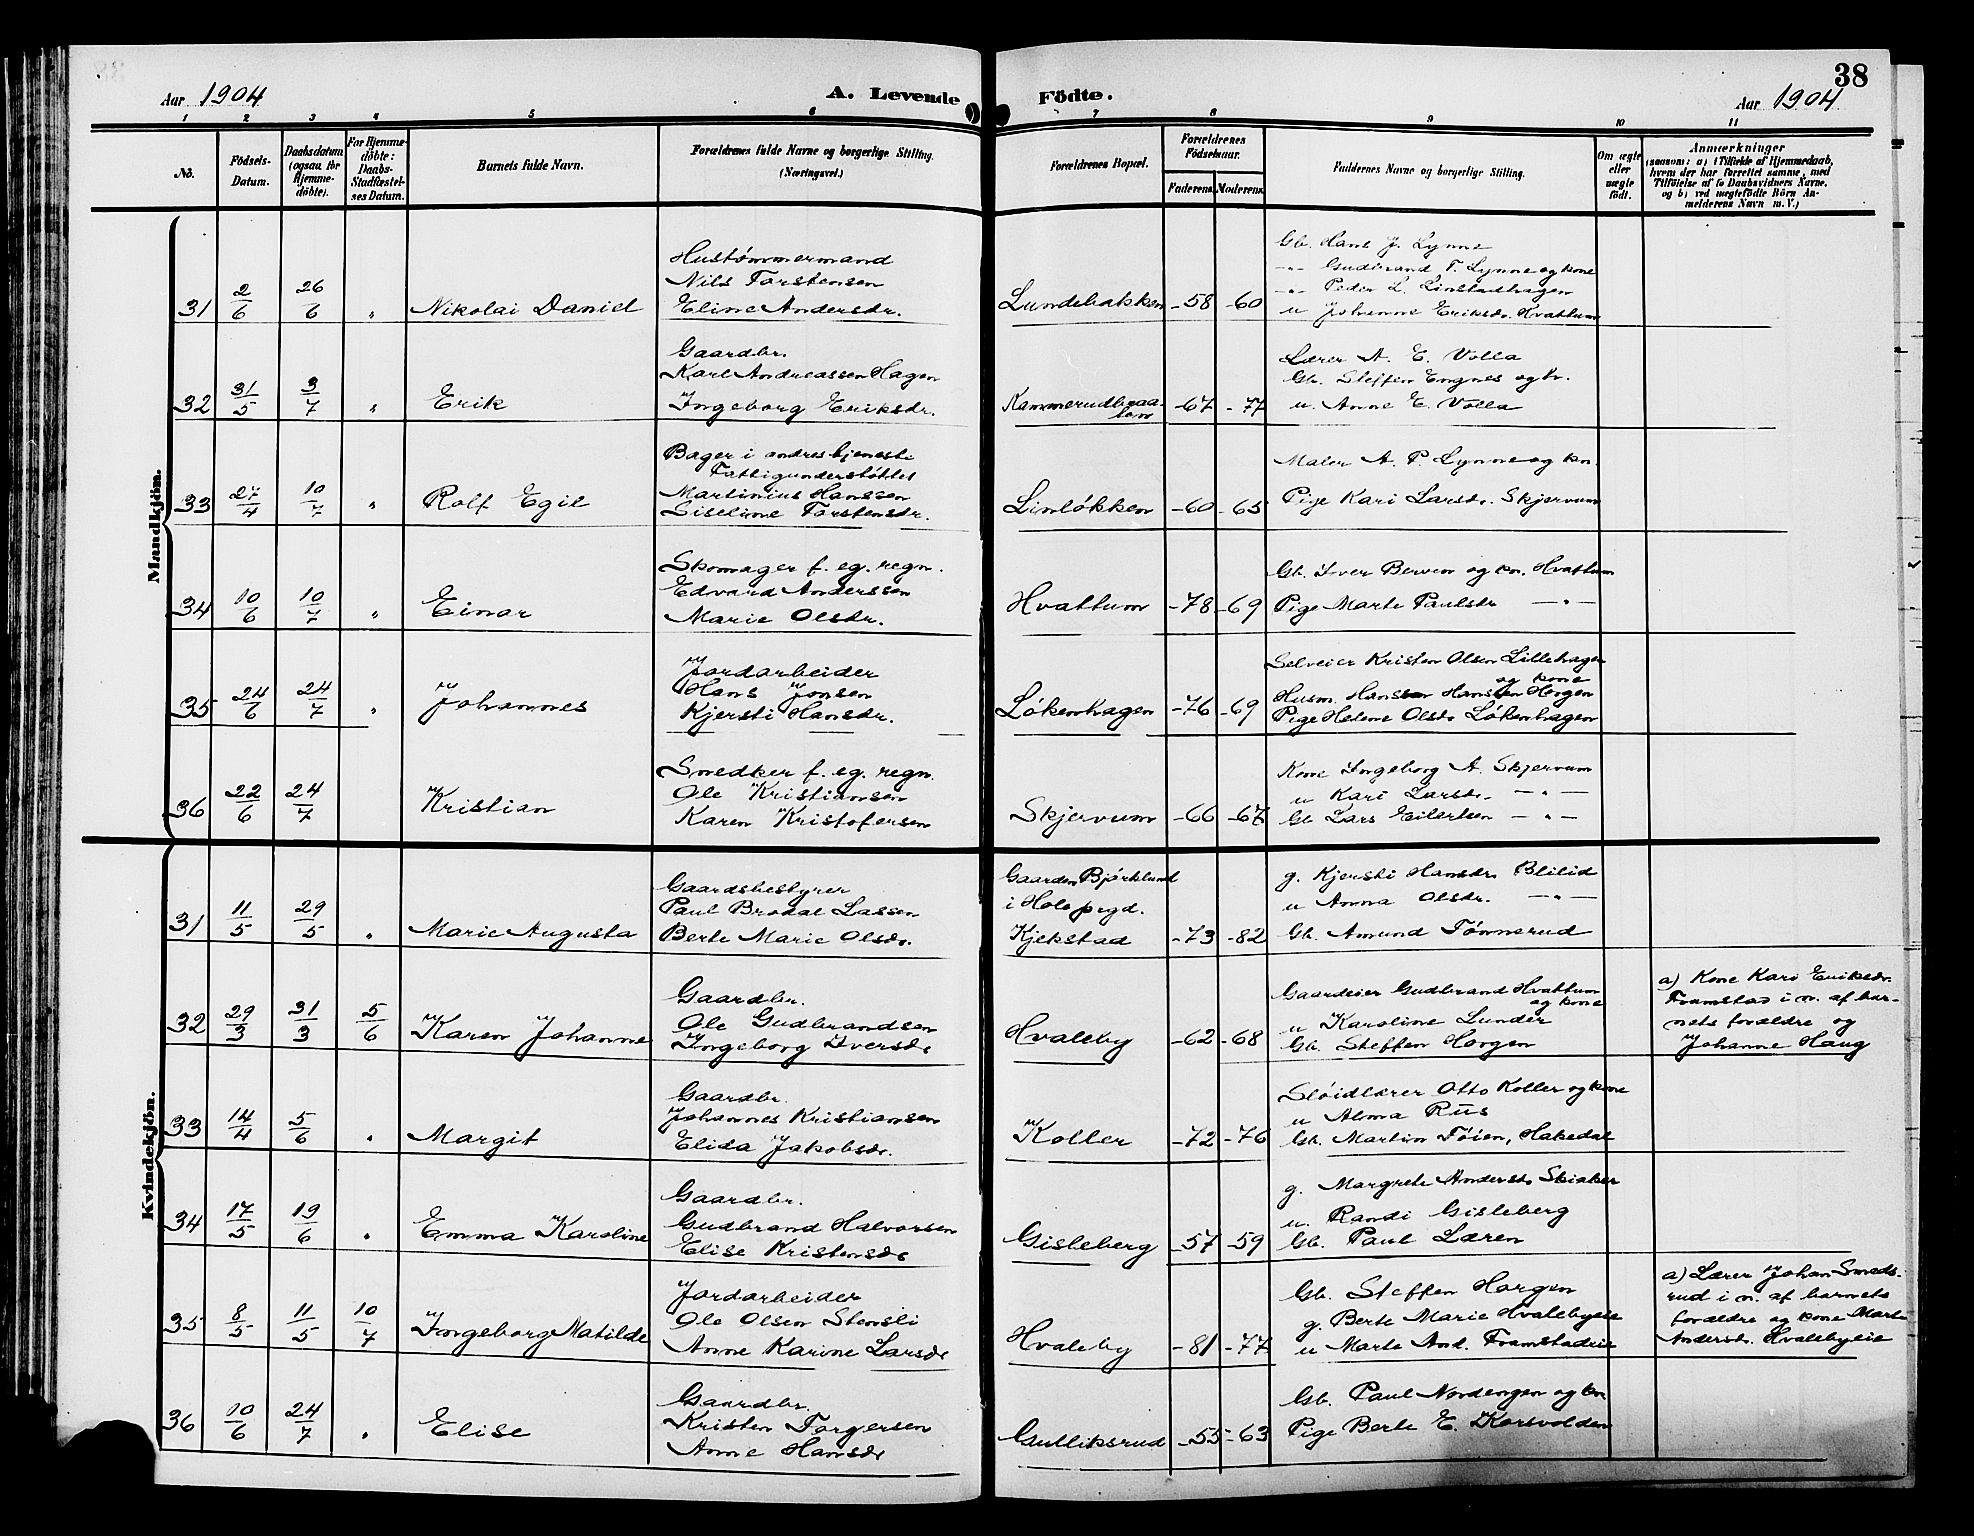 38
Aar 1904
A. Levende Födte.
Aar 1904
1 2 3 4 5 6 7 8 9 10 11
No.
Födsels-Datum.
Daabsdatum (ogsaa for Hjemme-döbte).
For Hjemme-döbte: Daabs-Stadfæstel-ses Datum.
Barnets fulde Navn.
Forældrenes fulde Navne og borgerlige Stilling.
(Næringsvei.)
Forældrenes Bopæl.
Forældrenes Födselsaar.
Faderens. Moderens.
Faddernes Navne og borgerlige Stilling.
Om ægte eller uægte födt.
Anmærkninger
(saasom: a) i Tilfælde af Hjemmedaab,
hvem der har forrettet samme, med
Tilföielse af to Daabsvidners Navne,
og b) ved uægtefödte Börn An-
melderens Navn m. V.)
Mandkjön.
31 2/6 26/6 " Nikolai Daniel
Hustømmermand
Nils Torstensen
Eline Andersdr.
Lundebakken -58 -60
Gb. Hans J. Lynne
-"- Gudbrand T. Lynne og kone
-"- Peder L. Linstadhagen
u Johanne Eriksdr. Hvattum
32 31/5 3/7 " Erik
Gaardbr.
Karl Andreassen Hagen
Ingeborg Eriksdr.
Kammerudbraaten -67 -77
Lærer A. E. Volla
Gb. Steffen Engnes og k.
u. Anne E. Volla
33 27/4 10/7 " Rolf Egil
Bager i andres tjeneste
Fattigunderstøttet
Martinius Hanssen
Siseline Torstensdr.
Linløkken -60 -65
Maler A. P. Lynne og kn.
Pige Kari Larsdr. Skjervum
34 10/6 10/7 " Einar
Skomager f. eg. regn.
Edvard Anderssen
Marie Olsdr.
Hvattum -78 -69
Gb. Iver Berven og kn. Hvattum
Pige Marte Paulsdr -"-
35 24/6 24/7 " Johannes
Jordarbeider
Hans Jonsen
Kjersti Hansdr.
Løkenhagen -76 -69
Selveier Kristen Olsen Lillehagen
og kone
Husm. Hanssen Hansen Horgen
Pige Helene Olsdr Løkenhagen
36 22/6 24/7 Kristian
Snedker f. eg. regn.
Ole Kristiansen
Karen Kristofersen
Skjervum -66 -67
Kone Ingeborg A. Skjervum
u Kari Larsdr. -"-
Gb Lars Eilertsen -"-
Kvindekjön.
31 11/5 29/5 " Marie Augusta
Gaardsbestyrer
Paul Brodal Lassen
Berte Marie Olsdr.
Gaarden Bjørklund
i Hole prgd.
Kjekstad -73 -82
g. Kjersti Hansdr. Blilid
u Anna Olsdr. -"-
Gb. Amund Tønnerud
32 29/3 31/3 5/6 Karen Johanne
Gaardbr.
Ole Gudbrandsen
Ingeborg Iversdr
Hvaleby -62 -68
Gaardeier Gudbrand Hvattum
og kone
u Karoline Lunder
Gb. Steffen Horgen
a) Kone Kari Eriksdr.
Framstad i n. af bar-
nets forældre og
Johanne Haug
33 14/4 5/6 " Margit
Gaardbr.
Johannes Kristiansen
Elida Jakobsdr.
Koller -72 -76
Sløidlærer Otto Koller og kone
u Alma Rus
Gb. Martin Tøien, Hakedal
34 17/5 19/6 " Emma Karoline
Gaardbr.
Gudbrand Halvorsen
Elise Kristensdr
Gisleberg -57 -59
g. Margrete Andersd. Skiaker
u. Randi Gisleberg
Gb. Paul Læren
35 8/5 11/5 10/7 Ingeborg Matilde
Jordarbeider
Ole Olsen Stensli
Anne Karine Larsdr
Hvaleby -81 -77
Gb. Steffen Horgen
g. Berte Marie Hvalebyeie
u Marte And. Framstadeie
a) Lærer Johan Smeds-
rud i n. af barnets
forældre og kone Marte
Andersd. Hvalebyeie
36 10/6 24/7 " Elise
Gaardbr.
Kristen Torgersen
Anne Hansdr
Gulliksrud -55 -63
Gb. Paul Nordengen og kn
Pige Berte E. Korsvolden